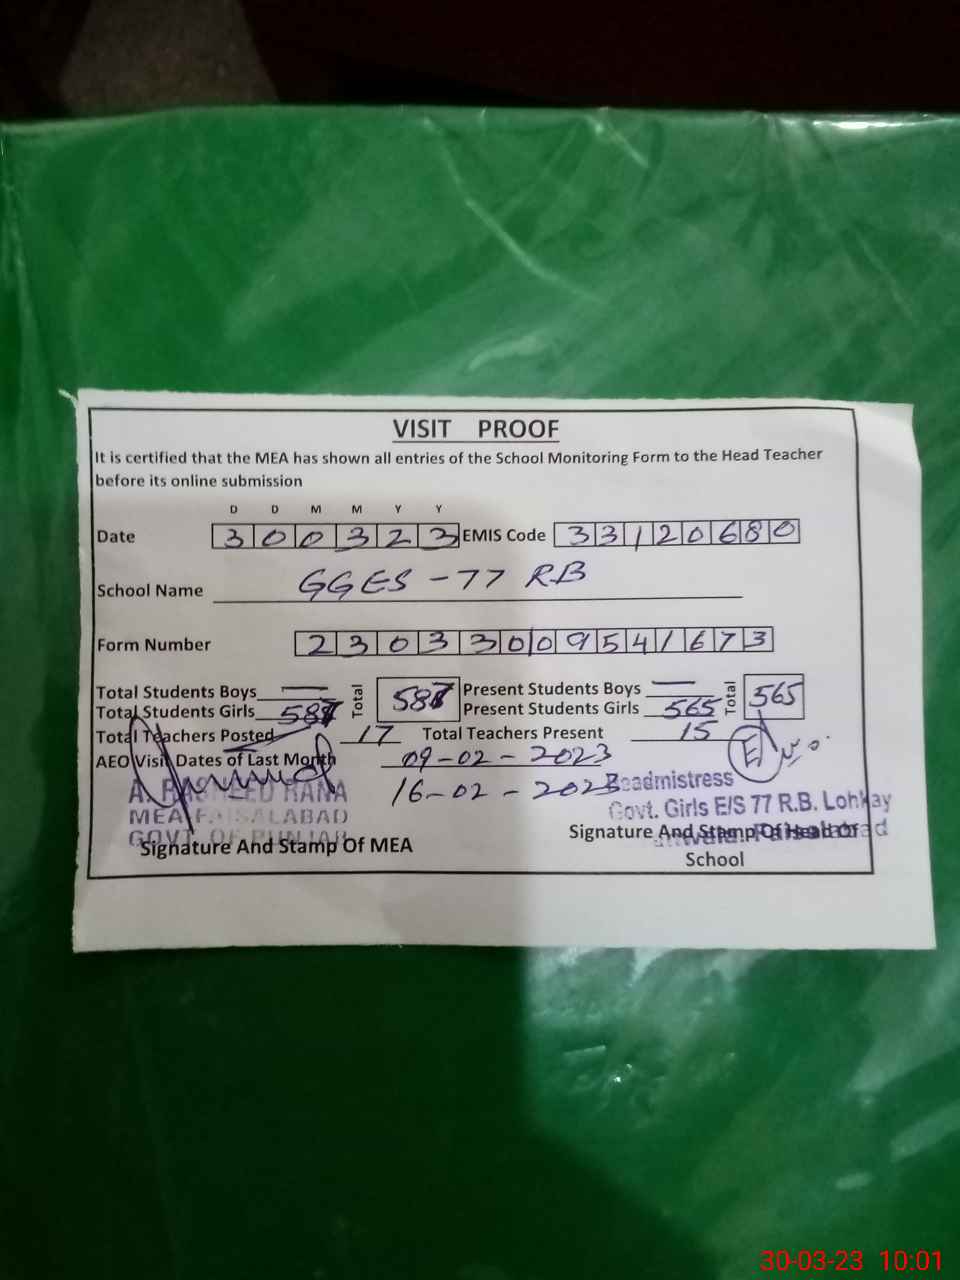 VISIT PROOF
It is certified that the MEA has shown all entries of the School Monitoring Form to the Head Teacher
before its online submission
D D M M Y Y
Date 300323 EMIS Code 33120680
School Name GGES-77 RB
Form Number 23033009541673
Total Students Boys — Total Present Students Boys — Total 565
Total Students Girls Present Students Girls 565
Total Teachers Posted 17 Total Teachers Present 15
AEO Visit Dates of Last Month 09-02-2023
16-02-2023
A. RASHEED RANA
MEA FAISALABAD
GOVT. OF PUNJAB
Signature And Stamp Of MEA
Headmistress
Govt. Girls E/S 77 R.B. Lohkay
Faisalabad
Signature And Stamp Of Head of
School
30-03-23 10:01